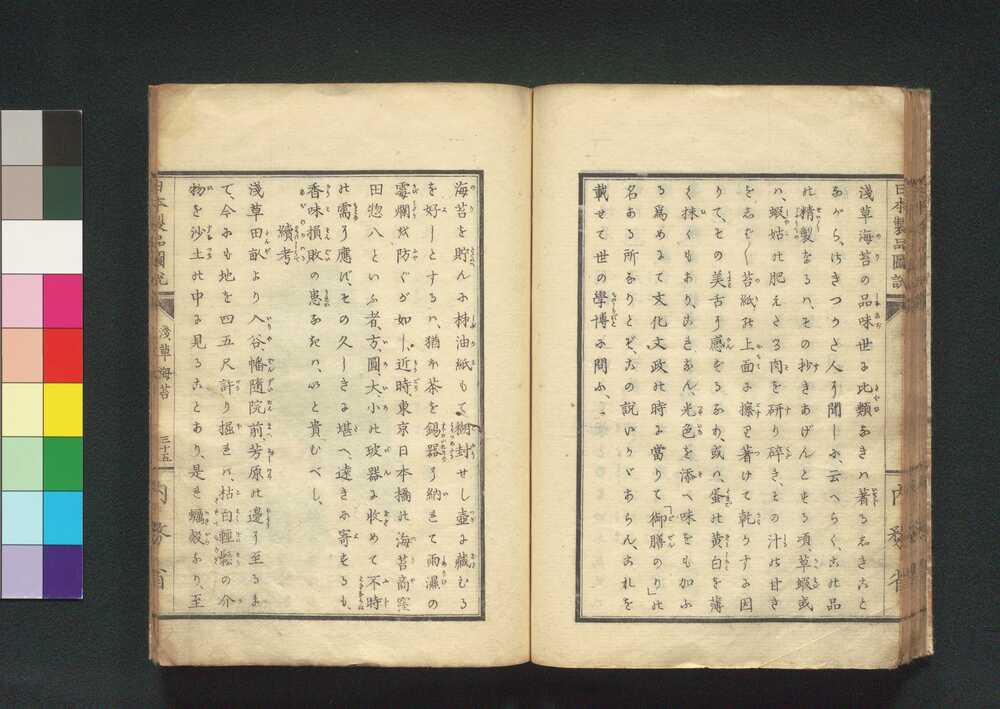 日本製品圖説
内務省
淺草海苔の品味世に比類なきハ著るしきこと
ながら、ちきつかた人に聞しに、云へらく、この品
の精製なるハ、その抄きあげんとする頃、草蝦或
ハ、蝦姑の肥えたる肉を研り碎き、その汁の甘き
を、しぞく苔紙の上面に擦を著けて乾かする因
りて、その美舌に感をるなり、或ハ、蛋の黄白を薄
く抹くもあり、かきなん、光色を添へ味をも加ふ
る為めにて文化文政の時に當りて「御膳のり」の
名ある所なりとぞ、この説いかゞあらん、これを
載せて世の學博に問ふ、
海苔を貯んに柿油紙もて糊封せし壺に藏むる
を好しとするハ、猶ホ茶を錫器に納れて雨濕の
霉爛を防ぐが如し、近時、東京日本橋の海苔商窪
田惣八といふ者、方、圓、大、小の玻器に收めて不時
の需に應ず、その久しきに堪へ、遠きに寄するも、
香味損敗の患なきハ、いと貴むべし、
續考
淺草田畝より入谷、幡隨院前、芳原の邊に至るま
で、今にも地を四五尺許り掘れバ、枯白輕鬆の介
物を沙土の中に見ることあり、是れ蠣殻なり、至
日本製品圖説
淺草海苔
三十五
内務省